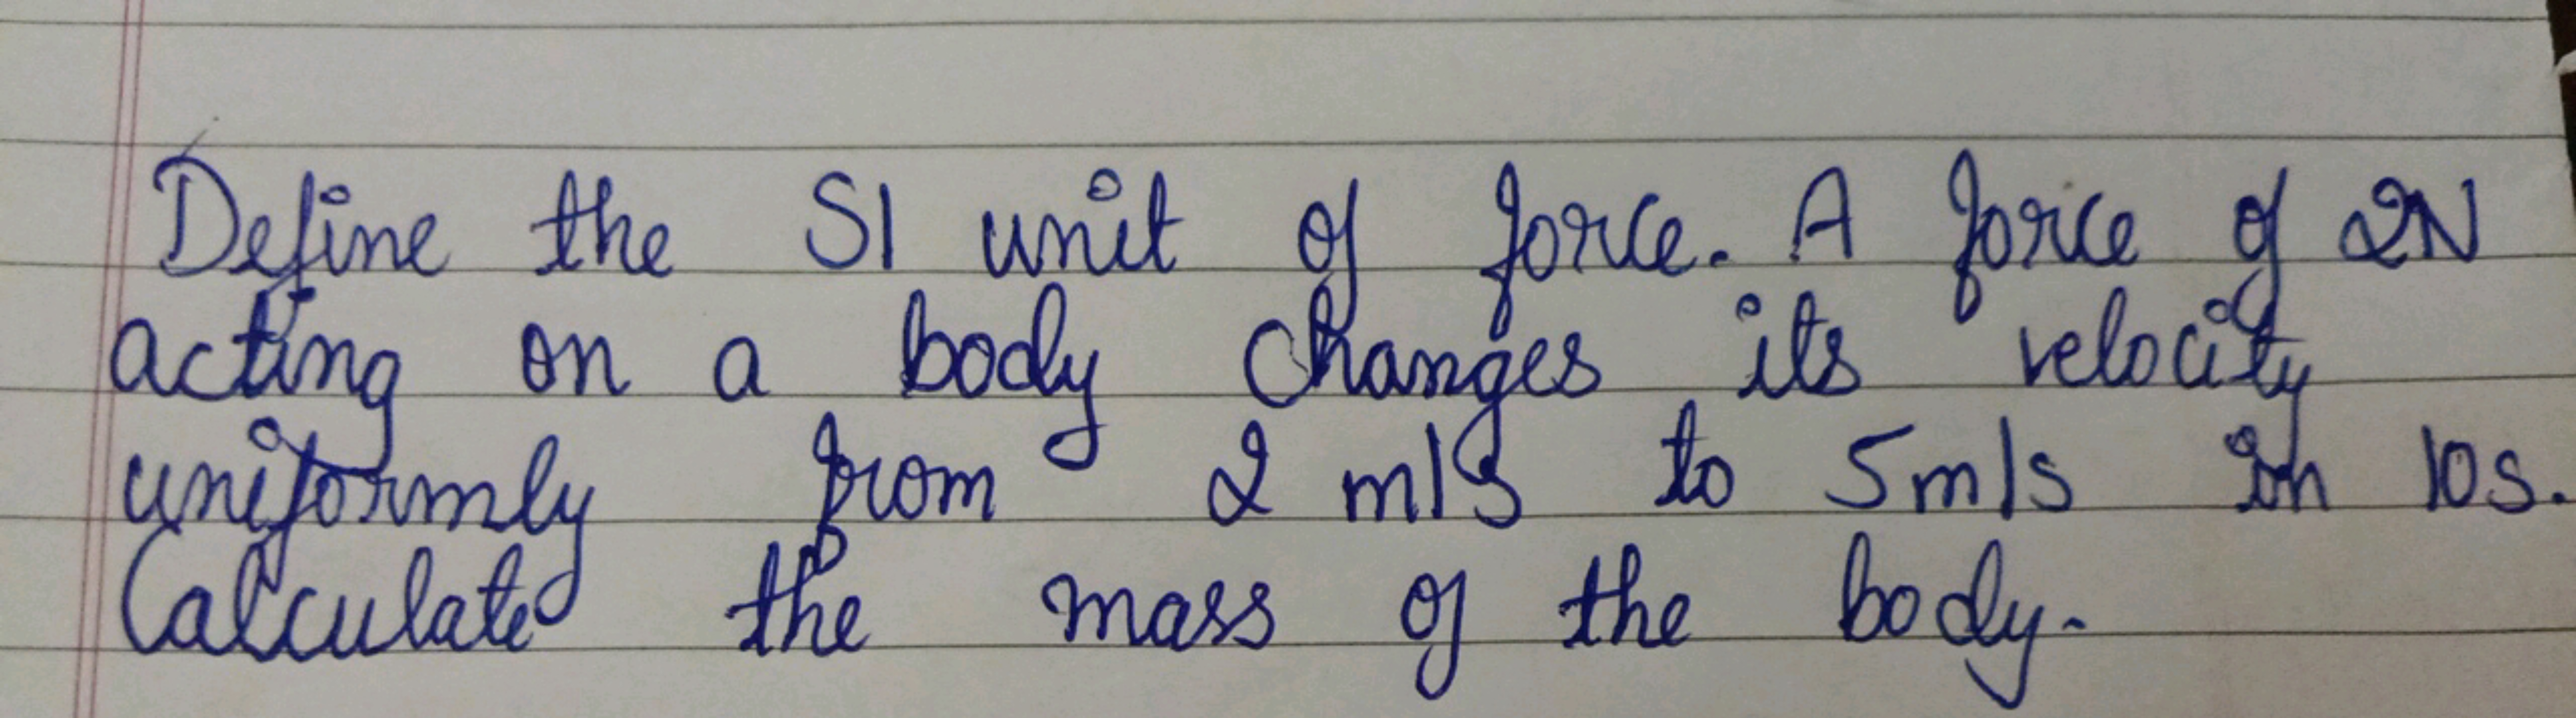 Define the SI unit of force. A force of 2N
acting on a body changes its velocity
uniformly from 2 m/s to 5m/s in 10s.
Calculate the mass of the body.